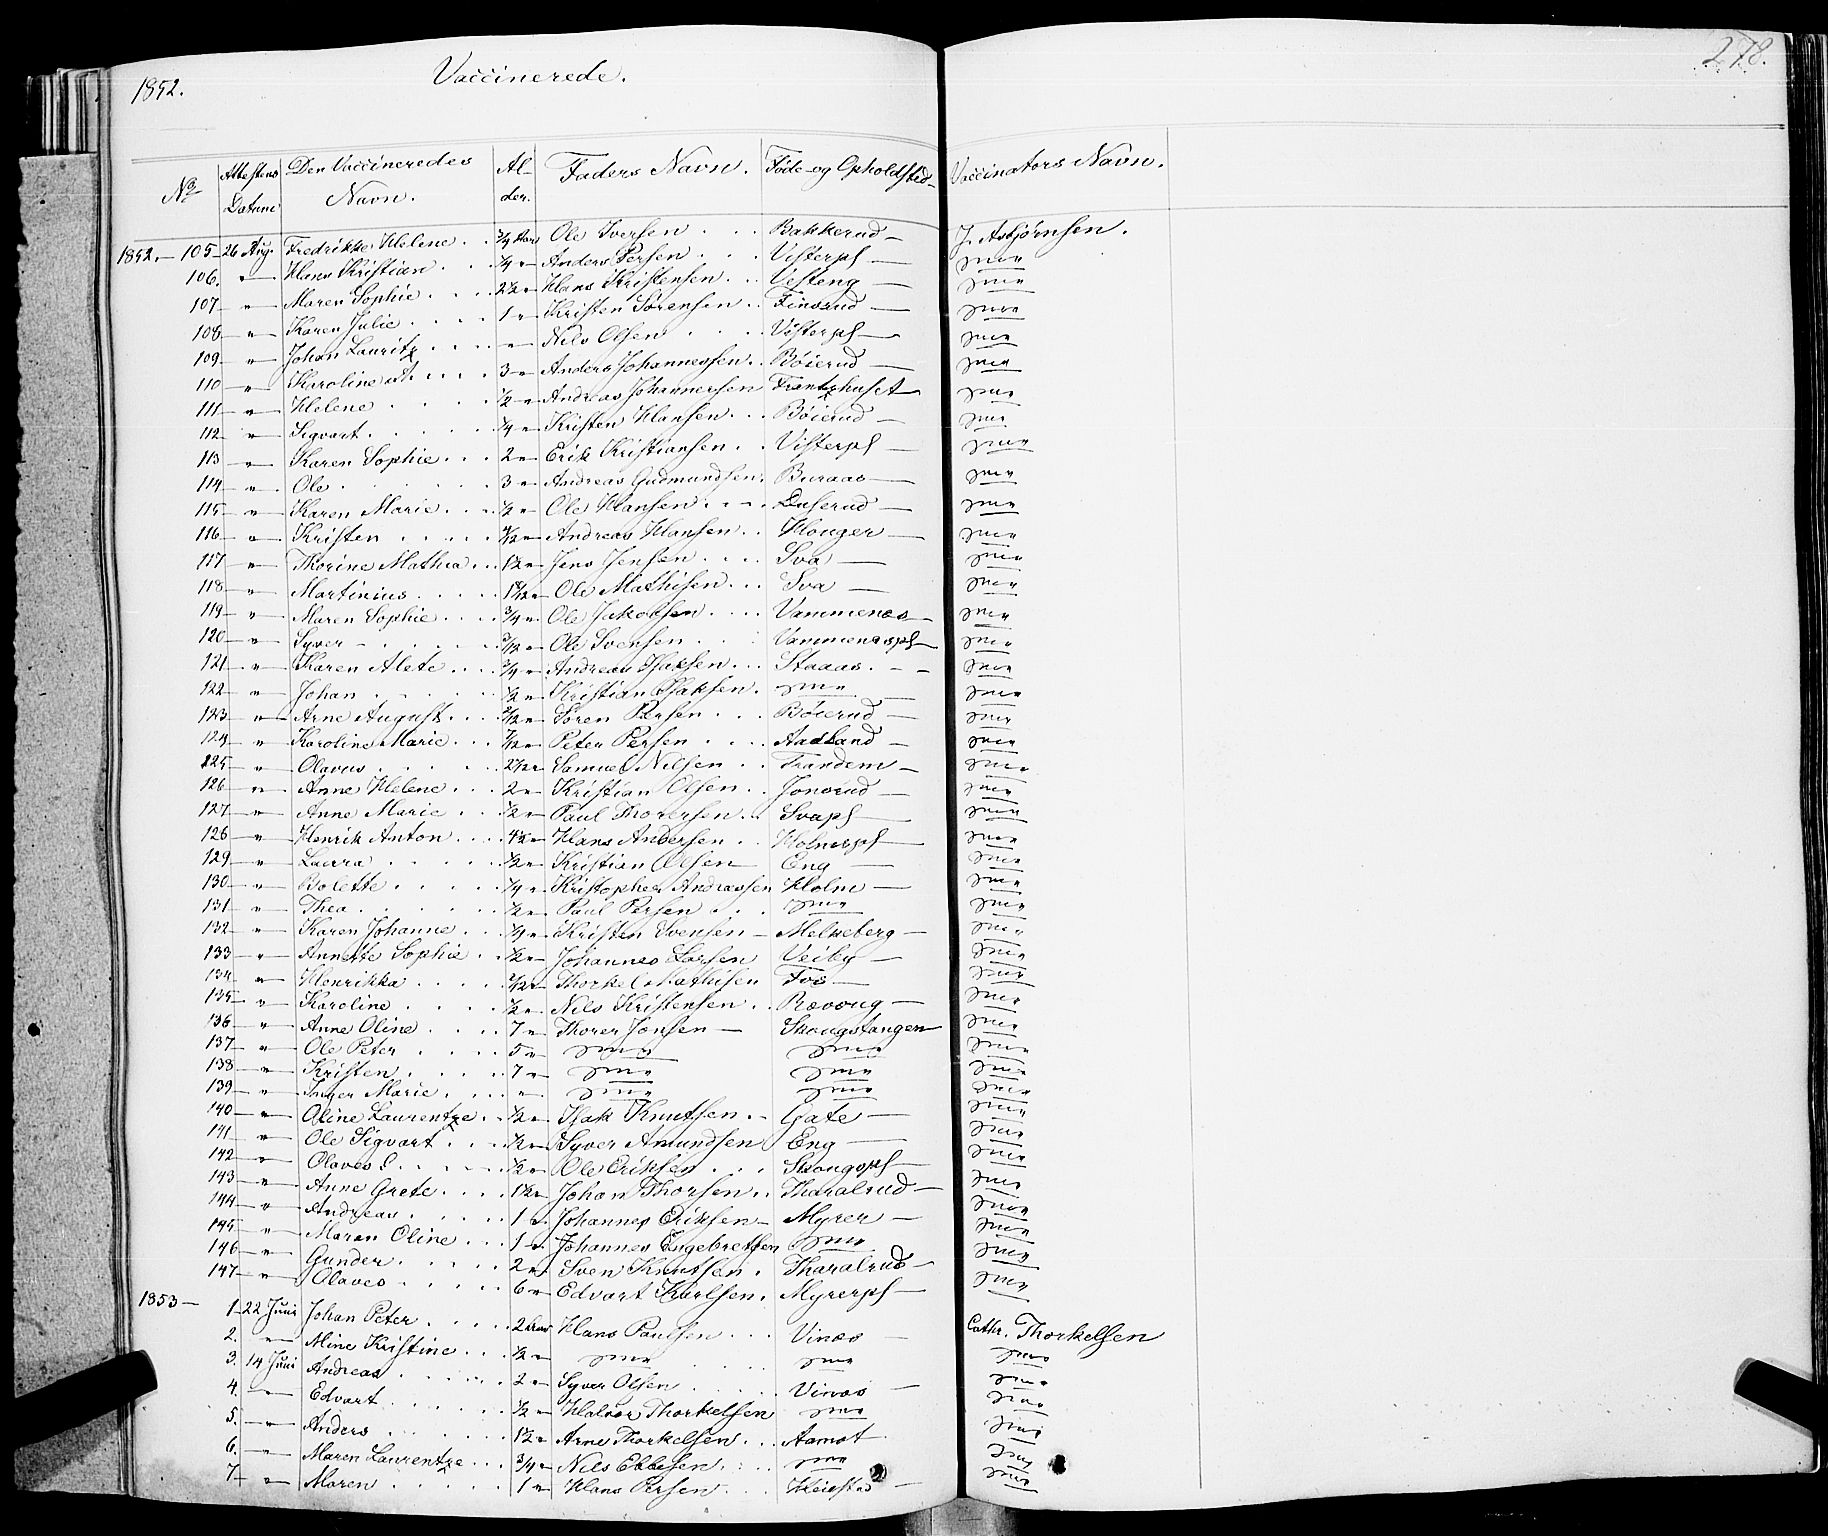 1852. Vaccinerede. 278.
No Attestens Datum Den Vaccineredes Navn. Alder. Faders Navn. Føde- og Opholdsted Vaccinators Navn.
1852.- 105- 26 Aug. Fredrikke Helene . . 3/4 Aar Ole Iversen . . . Bakkerud - J. Asbjørnsen.
106. " Hans Kristian . . 1/4 " Anders Persen . . . Visterpl -
107 " Maren Sophie . . . 2 1/2 " Hans Kristensen . . Vesteng -
108 " Karen Julie . . . . 1 " Kristen Sørensen . . Finsrud -
109 " Johan Lauritz . . . . " Nils Olsen . . . . Visterpl -
110 " Karoline . . . . 3 " Anders Johannessen . . Bøierud -
111 " Helene . . . . 1/2 " Andreas Johannersen Frantzhuset
112 " Sigvart . . . . . 1/4 " Kristen Hansen . . . Bøierud -
113 " Karen Sophie . . . 2 " Erik Kristiansen . . Visterpl -
114 " Ole . . . . . . 3 " Andreas Gudmundsen . Buraas
115 " Karen Marie . . . 1/2 " Ole Hansen . . . . Duserud -
116 " Kristen . . . . . Andreas Hansen . . Houger -
117 " Thorine Mathea . . 1 1/2 " Jens Jensen . . . . Sva -
118 " Martinius . . . . . Ole Mathisen . . . Sva -
119 " Maren Sophie . . . . 3/4 " Ole Jakobsen . . . . Vammenæs
120 " Syver - . . . . . Ole Svensen . . . Vammenæspl
121 " Karen Alete . . . 3/4 " Andreas Isaksen . . . Staaas . - -
122 " Johan . . . . . 1/2 " Kristian Isaksen .
123 " Arne August . . . Søren Persen . . . Bøierud -
124 " Karoline Marie . . . Peter Persen . . . . Aasland -
225 " Olavus . . . . . 2 1/2 " Samuel Nilsen . . Trandem -
126 " Anne Helene . . . 2 " Kristian Olsen . . Jonsrud -
127 " Anne Marie . . . 1/2 " Paul Thorersen . . Svapl -
126 " Henrik Anton . . . 4 1/2 " Hans Andersen . . Holmerpl
129 " Laura . . . . . 1/2 " Kristian Olsen Eng -
130 " Bolette . . . . . 1/4 " Kristopher Andreassen Holm -
131 " Thea . . . . . . 1/2 " Paul Persen . . .
132 " Karen Johanne . . . 1/4 " Kristen Svensen - Melneberg -
133 " Annette Sophie . . 1/2 " Johannes Larsen Veiby -
134 " Henrikka . . . . Thorkel Mathisen Fos -
135 " Karoline . . . . 1/2 " Nils Kristensen . . Rævoug -
136 " Anne Oline . . . . 7 " Thorer Jonsen - Skougstangen
137 " Ole Peter . . . . 5 "
138 " Kristen . . . . . 7 "
139 " Inger Marie . . . . "
140 " Oline Laurentze . . 1/2 " Isak Knutsen . - Gate -
141 " Ole Sigvart . . . 1/2 " Syver Amundsen Eng -
142 " Olaves . . . 1/2 " Ole Eriksen . . . Skougspl
143 " Anne Grete . . . . 1 1/2 " Johan Thorsen . . Tharalrud -
144 " Andreas . . . . . 1 " Johannes Eriksen - Myrer -
145 " Maran Oline . . . 1 " Johannes Engebretsen
146 " Gunder . . . . . 2 " Sven Knutsen . Tharalrud -
147 " Olaves . . . . . 6 " Edvart Karlsen . Myrerpl
1853 - 1 22 Juni Johan Peter . . . . . 2 Aar Hans Paulsen . . . Vinæs - Cathr. Thorkelsen
2. " Mine Kristine . . . 1/2 "
3. 14 Juni Andreas . . . . . 2 " Syver Olsen . . . . Vinæs -
4. " Edvart . . . . . 1/2 " Halvor Thorkelsen
5. " Anders . . . . . . 1 1/2 " Arne Thorkelsen . . . Aamot
6. " Maren Laurentze . . . 3/4 " Nils Ebbesen . . . .
7 " Maren . . . . . 1 " Hans Persen . . . Heiestad